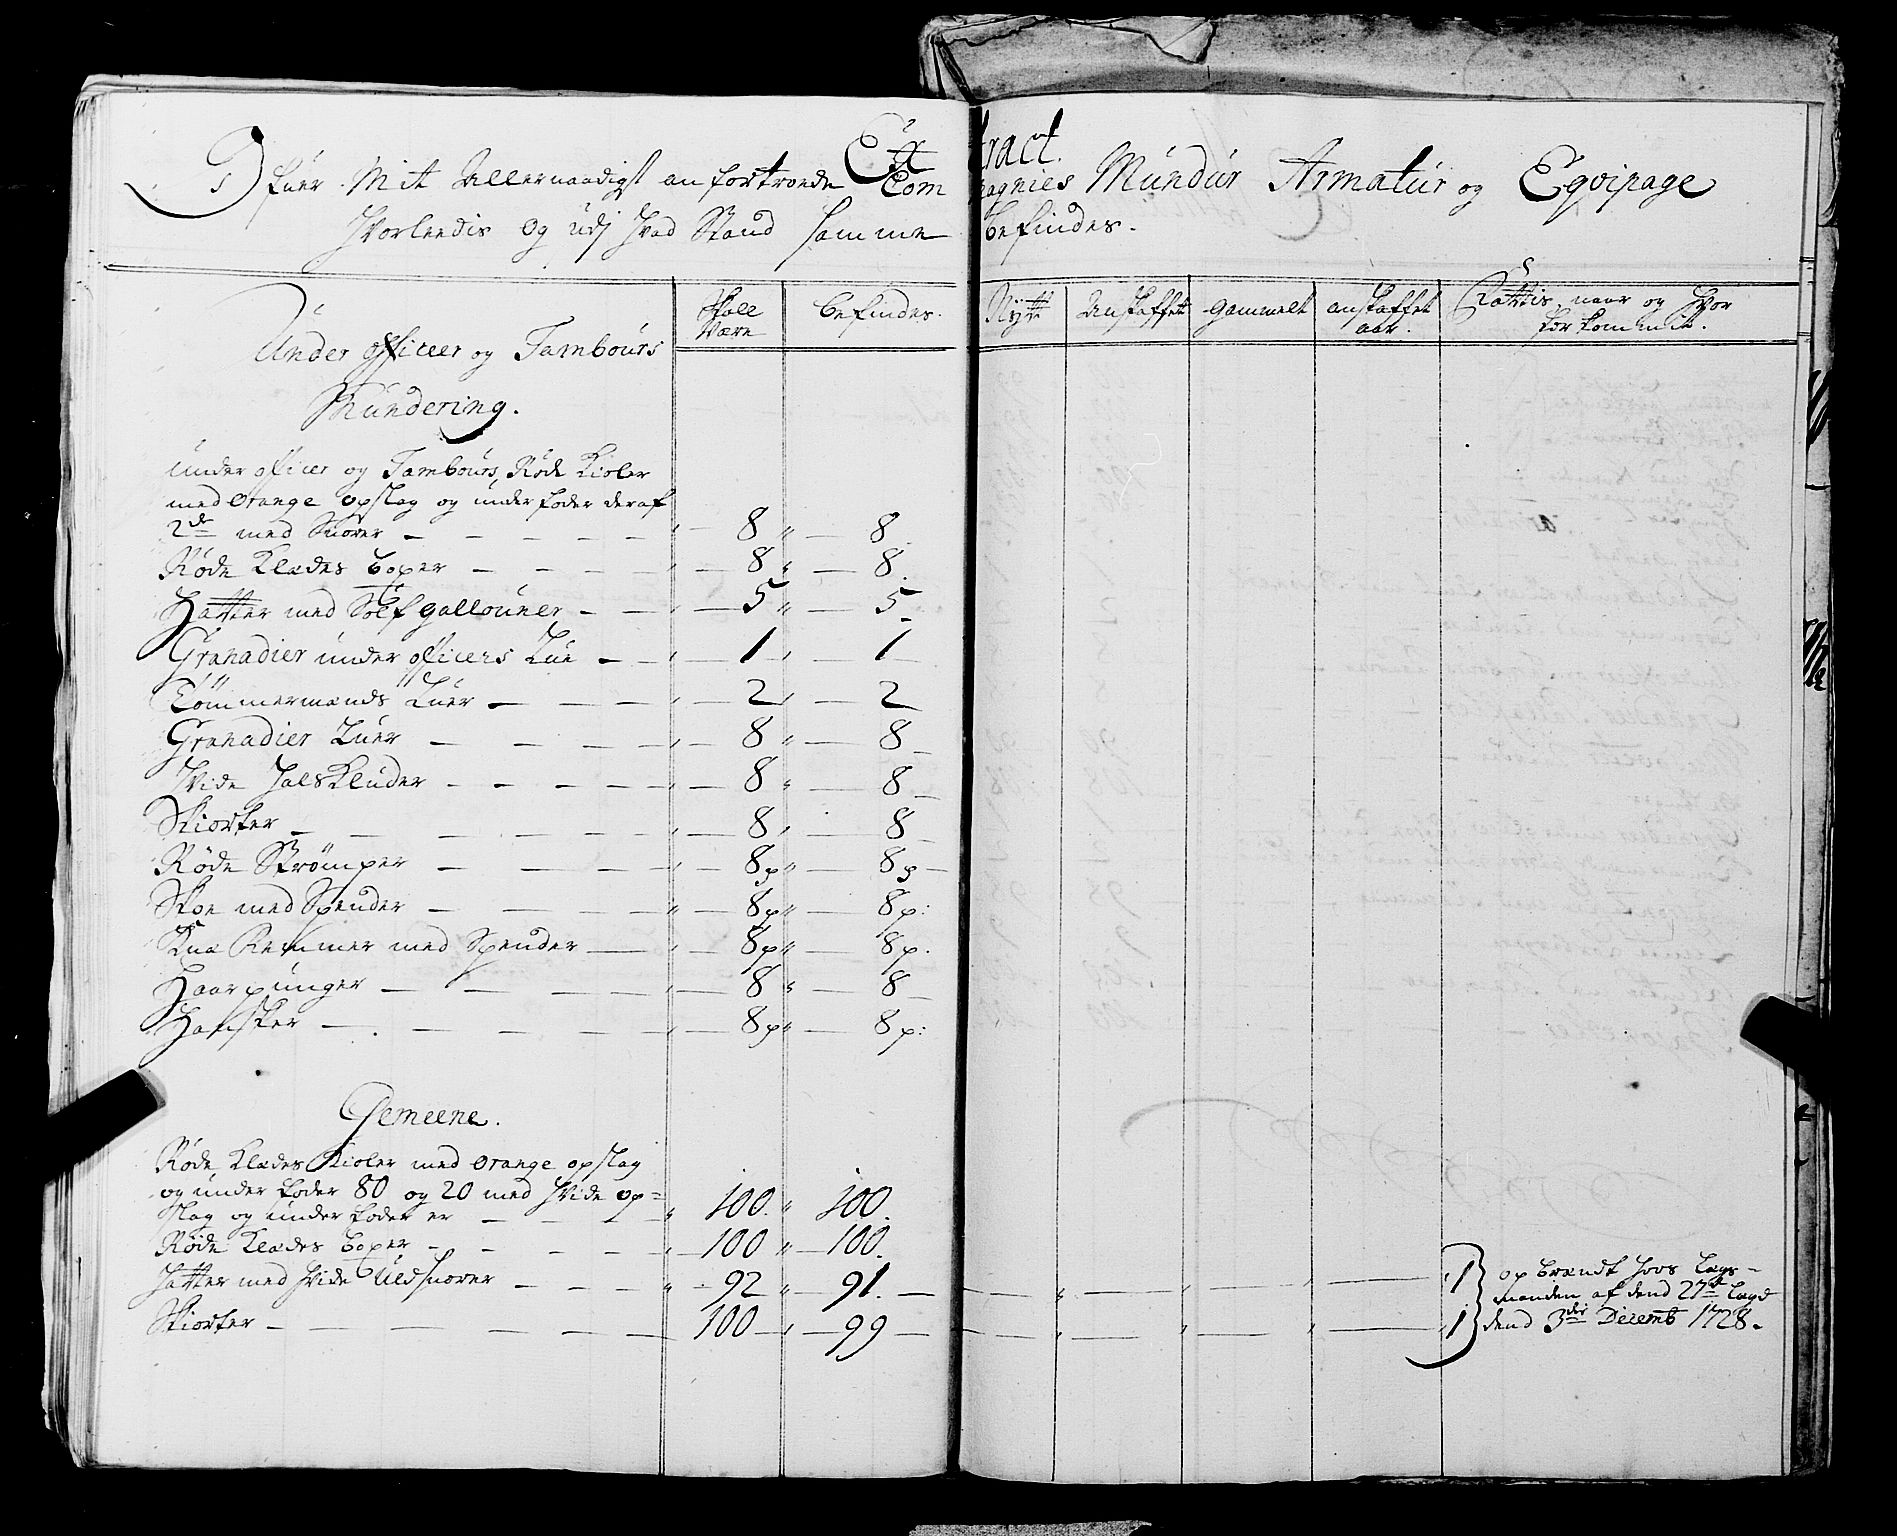 Extract.
Ofuer Mit Allernaadigst anfortroede Compagnies Mundur Armatur og Eqvipage
Hvorleedis og udj Hvad Stand samme befindes.
Skall Være
befindes.
Nytt
Anskaffett
gammelt
anskaffet aar.
Cattis, naar og Hvor
forkommit.
Under officeer og Tambours
Mundering.
under officer og Tambours, Røde Kioler
med orange opslag og underfoder deraf
2de med Snorer 8 8
Røde Klædes boxer 8 8
Hatter med Sølf gallouner 5 5
Granadier under officers Lue 1 1
Tømmermands Luer 2 2
Granadier Luer 8 8
Hvide Halskluder 8 8
Skiorter 8 8
Røde Strømper 8p 8p
Skoe med Spender 8p 8p:
Knæ Remmer med Spender 8p 8p.
Haarpunger 8 8
Hansker 8p 8p:
Gemeene.
Røde Klædes Kioler med orange opslag
og under foder 80 og 20 med Hvide op=
slag og under foder er 100. 100.
Røde Klædes boxer 100 100.
Hatter med Hvide Uldsnorer 92 91. 1 opbrændt hoos Lægs-
manden af dend 27de Lægd
Skiorter 100 99 1 dend 3die Decemb 1728.